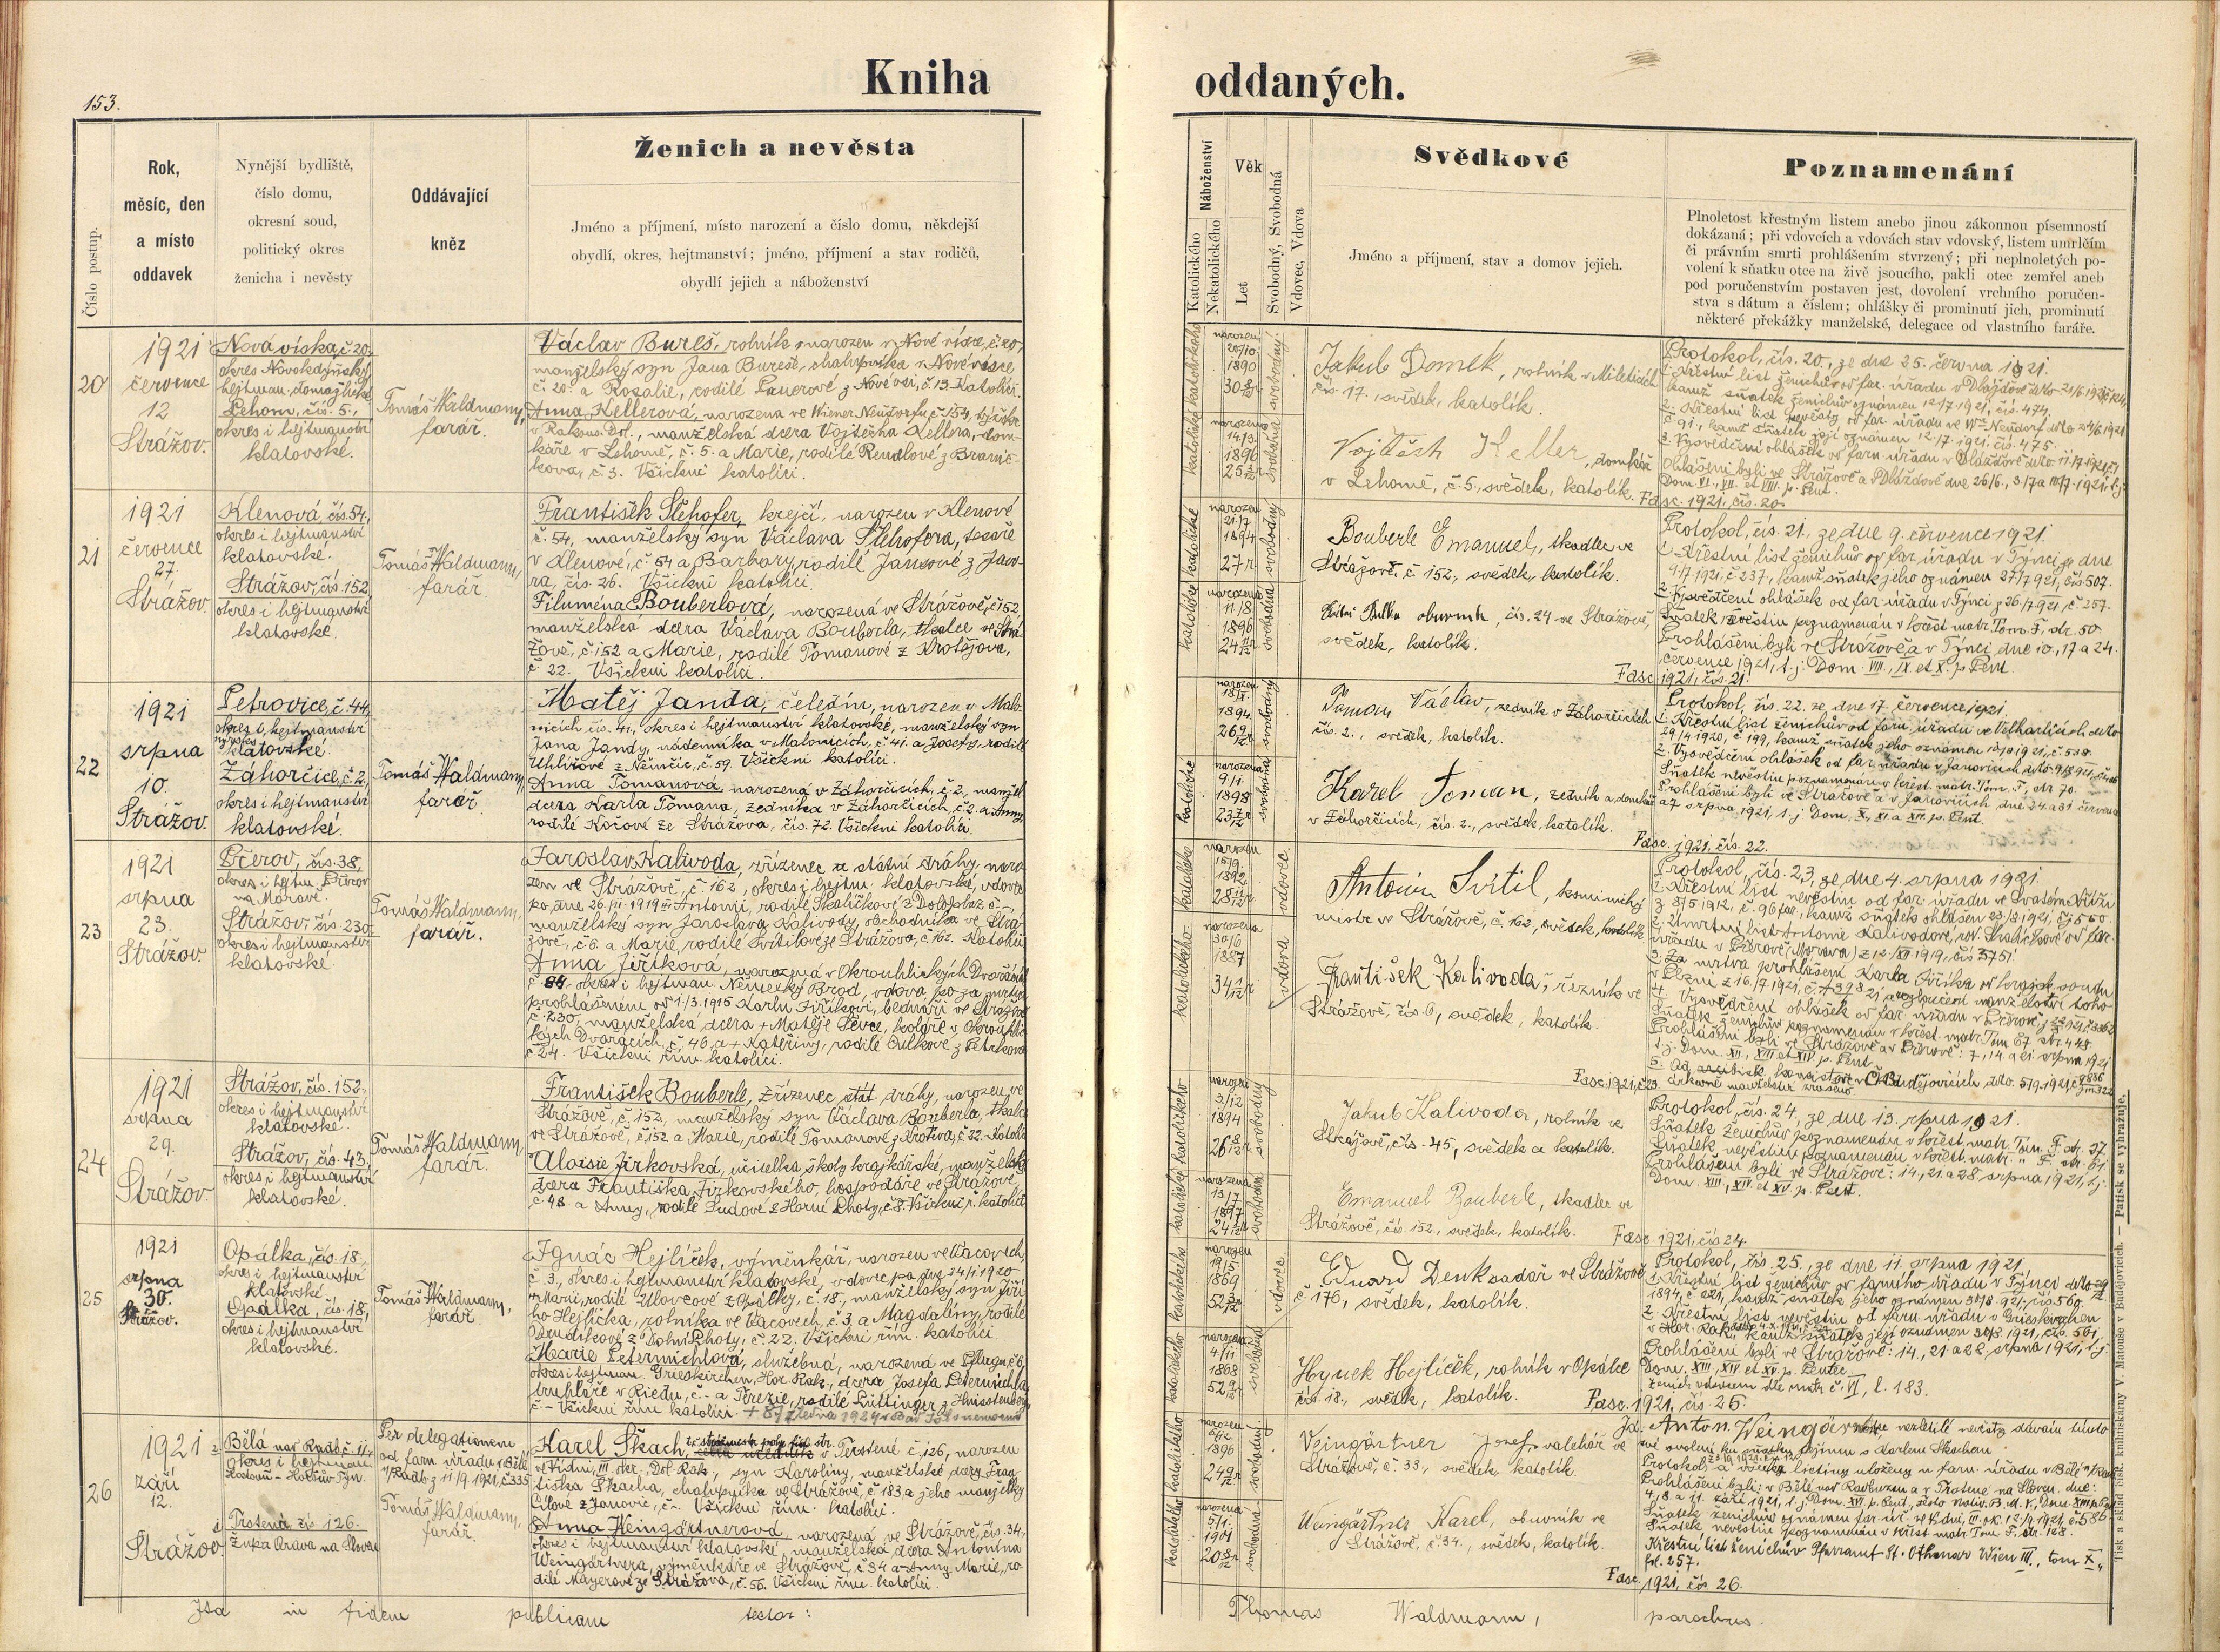 153.
Kniha
oddaných.
Číslo postup.
Rok,
měsíc, den
a místo
oddavek
Nynější bydliště,
číslo domu,
okresní soud,
politický okres
ženicha i nevěsty
Oddávající
kněz
Ženich a nevěsta
Jméno a příjmení, místo narození a číslo domu, někdejší
obydlí, okres, hejtmanství; jméno, příjmení a stav rodičů,
obydlí jejich a náboženství
Náboženství
Katolického
Nekatolického
Věk
Let
Svobodný, Svobodná
Vdovec, Vdova
Svědkové
Jméno a příjmení, stav a domov jejich.
Poznamenání
Plnoletost křestným listem anebo jinou zákonnou písemností
dokázaná; při vdovcích a vdovách stav vdovský, listem umrlčím
či právním smrti prohlášením stvrzený; při neplnoletých po-
volení k sňatku otce na živě jsoucího, pakli otec zemřel aneb
pod poručenstvím postaven jest, dovolení vrchního poručen-
stva s dátum a číslem; ohlášky či prominutí jich, prominutí
některé překážky manželské, delegace od vlastního faráře.
20
1921
července
12
Strážov.
Nová víska, č 20,
okres Novokdyňský,
hejtman. domažlické
Lehom, čís. 5.,
okres i hejtmanství
klatovské.
Tomáš Waldmann,
farář.
Václav Bureš, rolník, narozen v Nové vísce, č. 20,
manželský syn Jana Bureše, chalupníka v Nové vísce
č. 20. a Rosalie, rodilé Pauerové z Nové vsi, č. 13. Katolíci.
Anna Kellerová, narozena ve Wiener Neudorfu, č. 154,
v Rakous. Dol., manželská dcera Vojtěcha Kellera, dom-
káře v Lehomě, č. 5. a Marie, rodilé Rendlové z Braníč-
kova, č. 3. Všickni katolíci.
katolického
narozen
20/10
1890
svobodný
katolické
narozena
14/3
1896
svobodná
Jakub Domek, rolník v Mileticích
čís. 17., svědek, katolík.
Vojtěch Keller, domkář
v Lehomě, č. 5., svědek, katolík.
Protokol, čís. 20., ze dne 25. června 1921.
1. Křestní list ženichův od far. úřadu v
kamž sňatek ženichův oznámen 12/7 1921, čís. 474.
2. Křestní list nevěsty od far. úřadu ve Wr. Neudorf dto 24/6 1921
č 91., kamž sňatek její oznámen 12/7. 1921. čís. 475.
3. Vysvědčení ohlášek od farn. úřadu v
Ohlášeni byli ve Strážově a
Dom. VI., VII. et VIII. p. Pent.
Fasc. 1921, čís. 20.
21
1921
července
27.
Strážov.
Klenová, čís. 54,
okres i hejtmanství
klatovské.
Strážov, čís. 152,
okres i hejtmanství
klatovské.
Tomáš Waldmann,
farář.
František Stehofer, krejčí, narozen v Klenové
č. 54, manželský syn Václava Stehofera, tesaře
v Klenové, č. 54 a Barbory, rodilé Jansové z Javo-
ra, čís. 26. Všickni katolíci.
Filuména Bouberlová, narozená ve Strážově, č 152
manželská dcera Václava Bouberla, tkalce ve Strá-
žově, č. 152 a Marie, rodilé Tomanové z Krotějova,
č 22. Všickni katolíci.
katolické
21/7
1894
27 r
svobodný
katolické
narozena
11/8
1896
svobodná
Bouberle Emanuel, tkadlec ve
Strážově, č 152., svědek, katolík.
obuvník, čís. 24 ve Strážově,
svědek, katolík.
Protokol, čís. 21. ze dne 9. července 1921.
1. Křestní list ženichův od far. úřadu v Týnci ze dne
9/7. 1921. č 237., kamž sňatek jeho oznámen 27/7 921, čís. 507.
2. Vysvědčení ohlášek od far. úřadu v Týnci z 26/7 921, č. 257.
Sňatek nevěstin poznamenán v křest matr. Tom. F, str. 50.
Prohlášeni byli ve Strážově a v Týnci, dne 10., 17 a 24.
července 1921, t. j. Dom. VIII., IX. et X. p. Pent.
Fasc. 1921, čís. 21.
22
1921
srpna
10.
Strážov.
Petrovice, č. 44,
okres hejtmanství
klatovské.
Záhorčice, č. 2,
okres i hejtmanství
klatovské.
Tomáš Waldmann,
farář.
Matěj Janda, čeledín, narozen v Malo-
nicích čís. 41., okres i hejtmanství klatovské, manželský syn
Jana Jandy, nádenníka v Malonicích, č. 41. a Josefy, rodilé
Uhlířové z Němčic, č. 59. Všickni katolíci.
Anna Tomanová, narozená v Záhorčicích, č. 2, manžel.
dcera Karla Tomana, zedníka v Záhorčicích, č. 2. a Anny,
rodilé Kočové ze Strážova, čís. 72. Všickni katolíci.
narozen
1894
svobodný
katolické
narozena
9/1.
1898
svobodná
Toman Václav, zedník v Záhorčicích
čís. 2., svědek, katolík.
Karel Toman, zedník a domkář
v Záhorčicích, čís. 2., svědek, katolík.
Protokol, čís. 22. ze dne 17. července 1921
1. Křestní list ženichův od farn. úřadu ve
29/4 1920, č 199, kamž sňatek jeho oznámen 10/8 1921, č 538.
2. Vysvědčení ohlášek od far. úřadu v Janovicích
Sňatek nevěstin poznamenán v křest. matr. Tom. F., str 70.
Prohlášeni byli ve Strážově a v Janovicích dne 24. a 31. července
a 7 srpna, 1921, t. j. Dom. X., XI. a XII. p. Pent.
Fasc. 1921, čís. 22.
23
1921
srpna
23.
Strážov.
Přerov, čís. 38,
okres i hejtm. Přerov
na Moravě.
Strážov, čís. 230,
okres i hejtmanství
klatovské.
Tomáš Waldmann,
farář.
Jaroslav Kalivoda, zřízenec u státní dráhy, naro-
zen ve Strážově, č 162, okres i hejtm. klatovské, vdovec
po, dne 26. XII. 1919 Antonii, rodilé Skaličkové z Doloplaz č. –,
manželský syn Jaroslava Kalivody, obchodníka ve Strá-
žově, č 6. a Marie, rodilé Svítilové ze Strážova, č 162. Katolíci
Anna Jiříková, narozená v Okrouhlických Dvořácích
č 84, okres i hejtman. Německý Brod, vdova po za mrtva
prohlášeném od 1./3. 1915 Karlu Jiříkovi, bednáři ve Strážově
č. 230., manželská dcera + Matěje Ševce, koláře v Okrouhli-
ckých Dvorácích, č. 46, a + Kateřiny, rodilé Čulkové z Petrkova
č. 24. Všickni řím. katolíci.
katolické
narozen
15/9.
1892
vdovec
katolického
narozena
30/6
1887
vdova
Antonín Svítil, kominický
mistr ve Strážově, č 162, svědek, katolík
František Kalivoda, řezník ve
Strážově, čís. 6, svědek, katolík.
Protokol, čís. 23, ze dne 4. srpna 1921.
1. Křestní list nevěstin od far. úřadu ve Svatém Kříži
z 8/5 1912, č. 96 far, kamž sňatek ohlášen 23/8 1921, čj 550.
2. Úmrtní list Antonie Kalivodové, roz. Skaličkové od far.
úřadu v Přerově (Morava) z 12/XII. 1919, čís 3751.
3. Za mrtva prohlášení Karla Jiříka od krajsk. soudu
v Plzni z 16/7 1921,
4. Vysvědčení ohlášek od far. úřadu v Přerově
Sňatek ženichův poznamenán v křest. matr. Tom 67 str. 448.
Prohlášeni byli ve Strážově a v Přerově: 7, 14 a 21. srpna 1921
t. j. Dom. XII., XIII et XIV. p. Pent.
Fasc. 1921, č 23.
24
1921
srpna
29.
Strážov.
Strážov, čís. 152.,
okres i hejtmanství
klatovské.
Strážov, čís. 43,
okres i hejtmanství
klatovské.
Tomáš Waldmann,
farář.
František Bouberle, zřízenec stát. dráhy, narozen ve
Strážově, č. 152, manželský syn Václava Bouberla, tkalce
ve Strážově, č 152 a Marie, rodilé Tomanové z Krotěva, č 22. Katolíci
Aloisie Jirkovská, učitelka školy krajkářské, manželská
dcera Františka Jirkovského, hospodáře ve Strážově,
č. 43. a Anny, rodilé Dudové z Horní Lhoty, č 8. Všickni ř. katolíci.
katolického
narozen
3/12
1894
svobodný
katolické
narozena
13/7
1897
svobodná
Jakub Kalivoda, rolník ve
Strážově, čís. 45, svědek a katolík.
Emanuel Bouberle, tkadlec ve
Strážově, čís. 152., svědek, katolík.
Protokol, čís. 24, ze dne 13. srpna 1921.
Sňatek ženichův poznamenán v křest. matr. Tom. F. str. 37.
Sňatek nevěstin poznamenán v křest. matr. " F. str. 61.
Prohlášeni byli ve Strážově: 14, 21 a 28 srpna 1921, t. j.
Dom. XIII., XIV. et XV. p. Pent.
Fasc. 1921, čís 24.
25
1921
srpna
30.
Strážov.
Opálka, čís. 18.,
okres i hejtmanství
klatovské
Opálka, čís. 18,
okres i hejtmanství
klatovské.
Tomáš Waldmann,
farář.
Ignác Hejlíček, výměnkář, narozen ve Vacovech,
č 3., okres i hejtmanství klatovské, vdovec po dne 24/1 1920
+ Marii, rodilé Ulovcové z Opálky, č. 18., manželský syn Jiří-
ho Hejlíčka, rolníka ve Vacovech, č. 3 a Magdaleny, rodilé
Doudíkové z Dolní Lhoty, č. 22. Všickni řím. katolíci.
Marie Petermichlová, služebná, narozená ve
okres i hejtman. Grieskirchen, Hor. Rak., dcera Josefa Petermichla
truhláře v Riedu, č. – a Terezie, rodilé Lüttinger z
č – Všickni řím katolíci.
katolického
narozen
19/5
1869
vdovec
katolického
narozena
4/11
1868
svobodná
Eduard Denk sadař ve Strážově
č. 176, svědek, katolík.
Hynek Hejlíček, rolník v Opálce
čís. 18., svědek, katolík.
Protokol, čís. 25., ze dne 11. srpna 1921.
1. Křestní list ženichův od farního úřadu v Týnci
1894, č 221, kamž sňatek jeho oznámen 31/8. 921, čís 560.
2. Křestní list nevěstin od farn úřadu v Grieskirchen
v Hor. Rak, kamž sňatek její oznámen 31/8 1921, čís. 561.
Prohlášeni byli ve Strážově: 14, 21 a 28. srpna 1921, t. j.
Dom. XIII., XIV et XV. p. Pentec.
Ženich vdovcem dle matr č. VI, l. 183.
Fasc. 1921, čís. 25.
26
1921
září
12.
Strážov.
Bělá nad Radb. č. 11,
okres i hejtman.
Horšův Týn.
Trstená čís 126.
Župa Orava na Slove
Per delegationem
od farn. úřadu v Bělé
n/Radb. z 11/9. 1921, č. 335
Tomáš Waldmann,
farář.
Karel Škach, v Trstené č. 126, narozen
ve Vídni, III. okr., Dol. Rak., syn Karoliny, manželské dcery Fran-
tiška Škacha, chalupníka ve Strážově, č 183 a jeho manželky
z Janovic, č –. Všickni řím. katolíci.
Anna Weingärtnerová, narozená ve Strážově, čís. 34,
okres i hejtmanství klatovské, manželská dcera Antonína
Weingärtnera, výměnkáře ve Strážově, č 34 a Anny Marie, ro-
dilé Mayerové ze Strážova, č. 56. Všickni řím. katolíci.
katolického
narozen
1896
svobodný
katolického
narozena
5/1.
1901
svobodná
Veingärtner Josef, ve
Strážově, č. 33, svědek, katolík.
Weingärtner Karel, obuvník ve
Strážově, č. 34., svědek, katolík.
Já, Anton. Weingärtner nezletilé nevěsty dávám tímto
své svolení ku sňatku jejímu s Karlem Škachem.
Protokol a všecky listiny uloženy u farn. úřadu v Bělé n/Radb
Prohlášeni byli: v Bělé nad Radbuzou a v Trstené na Sloven. dne:
4., 8. a 11. září 1921, t. j. Dom. XVI. p. Pent., festo Nativ. B. M. V., Dom. XVII p Pent
Sňatek ženichův oznámen far. úř. ve Vídni, III. ok. 12/9. 1921, č. 586.
Sňatek nevěstin poznamenán v křest matr Tom F. str. 128.
Křestní list ženichův Pfarramt St. Othmar Wien III., tom X.,
fol. 257.
Fasc. 1921, čís 26.
Ita in fidem publicam testor:
Thomas Waldmann, parochus.
Tisk a sklad čísk. knihtiskárny V. Matouše v Budějovicích. — Patisk se vyhražuje.